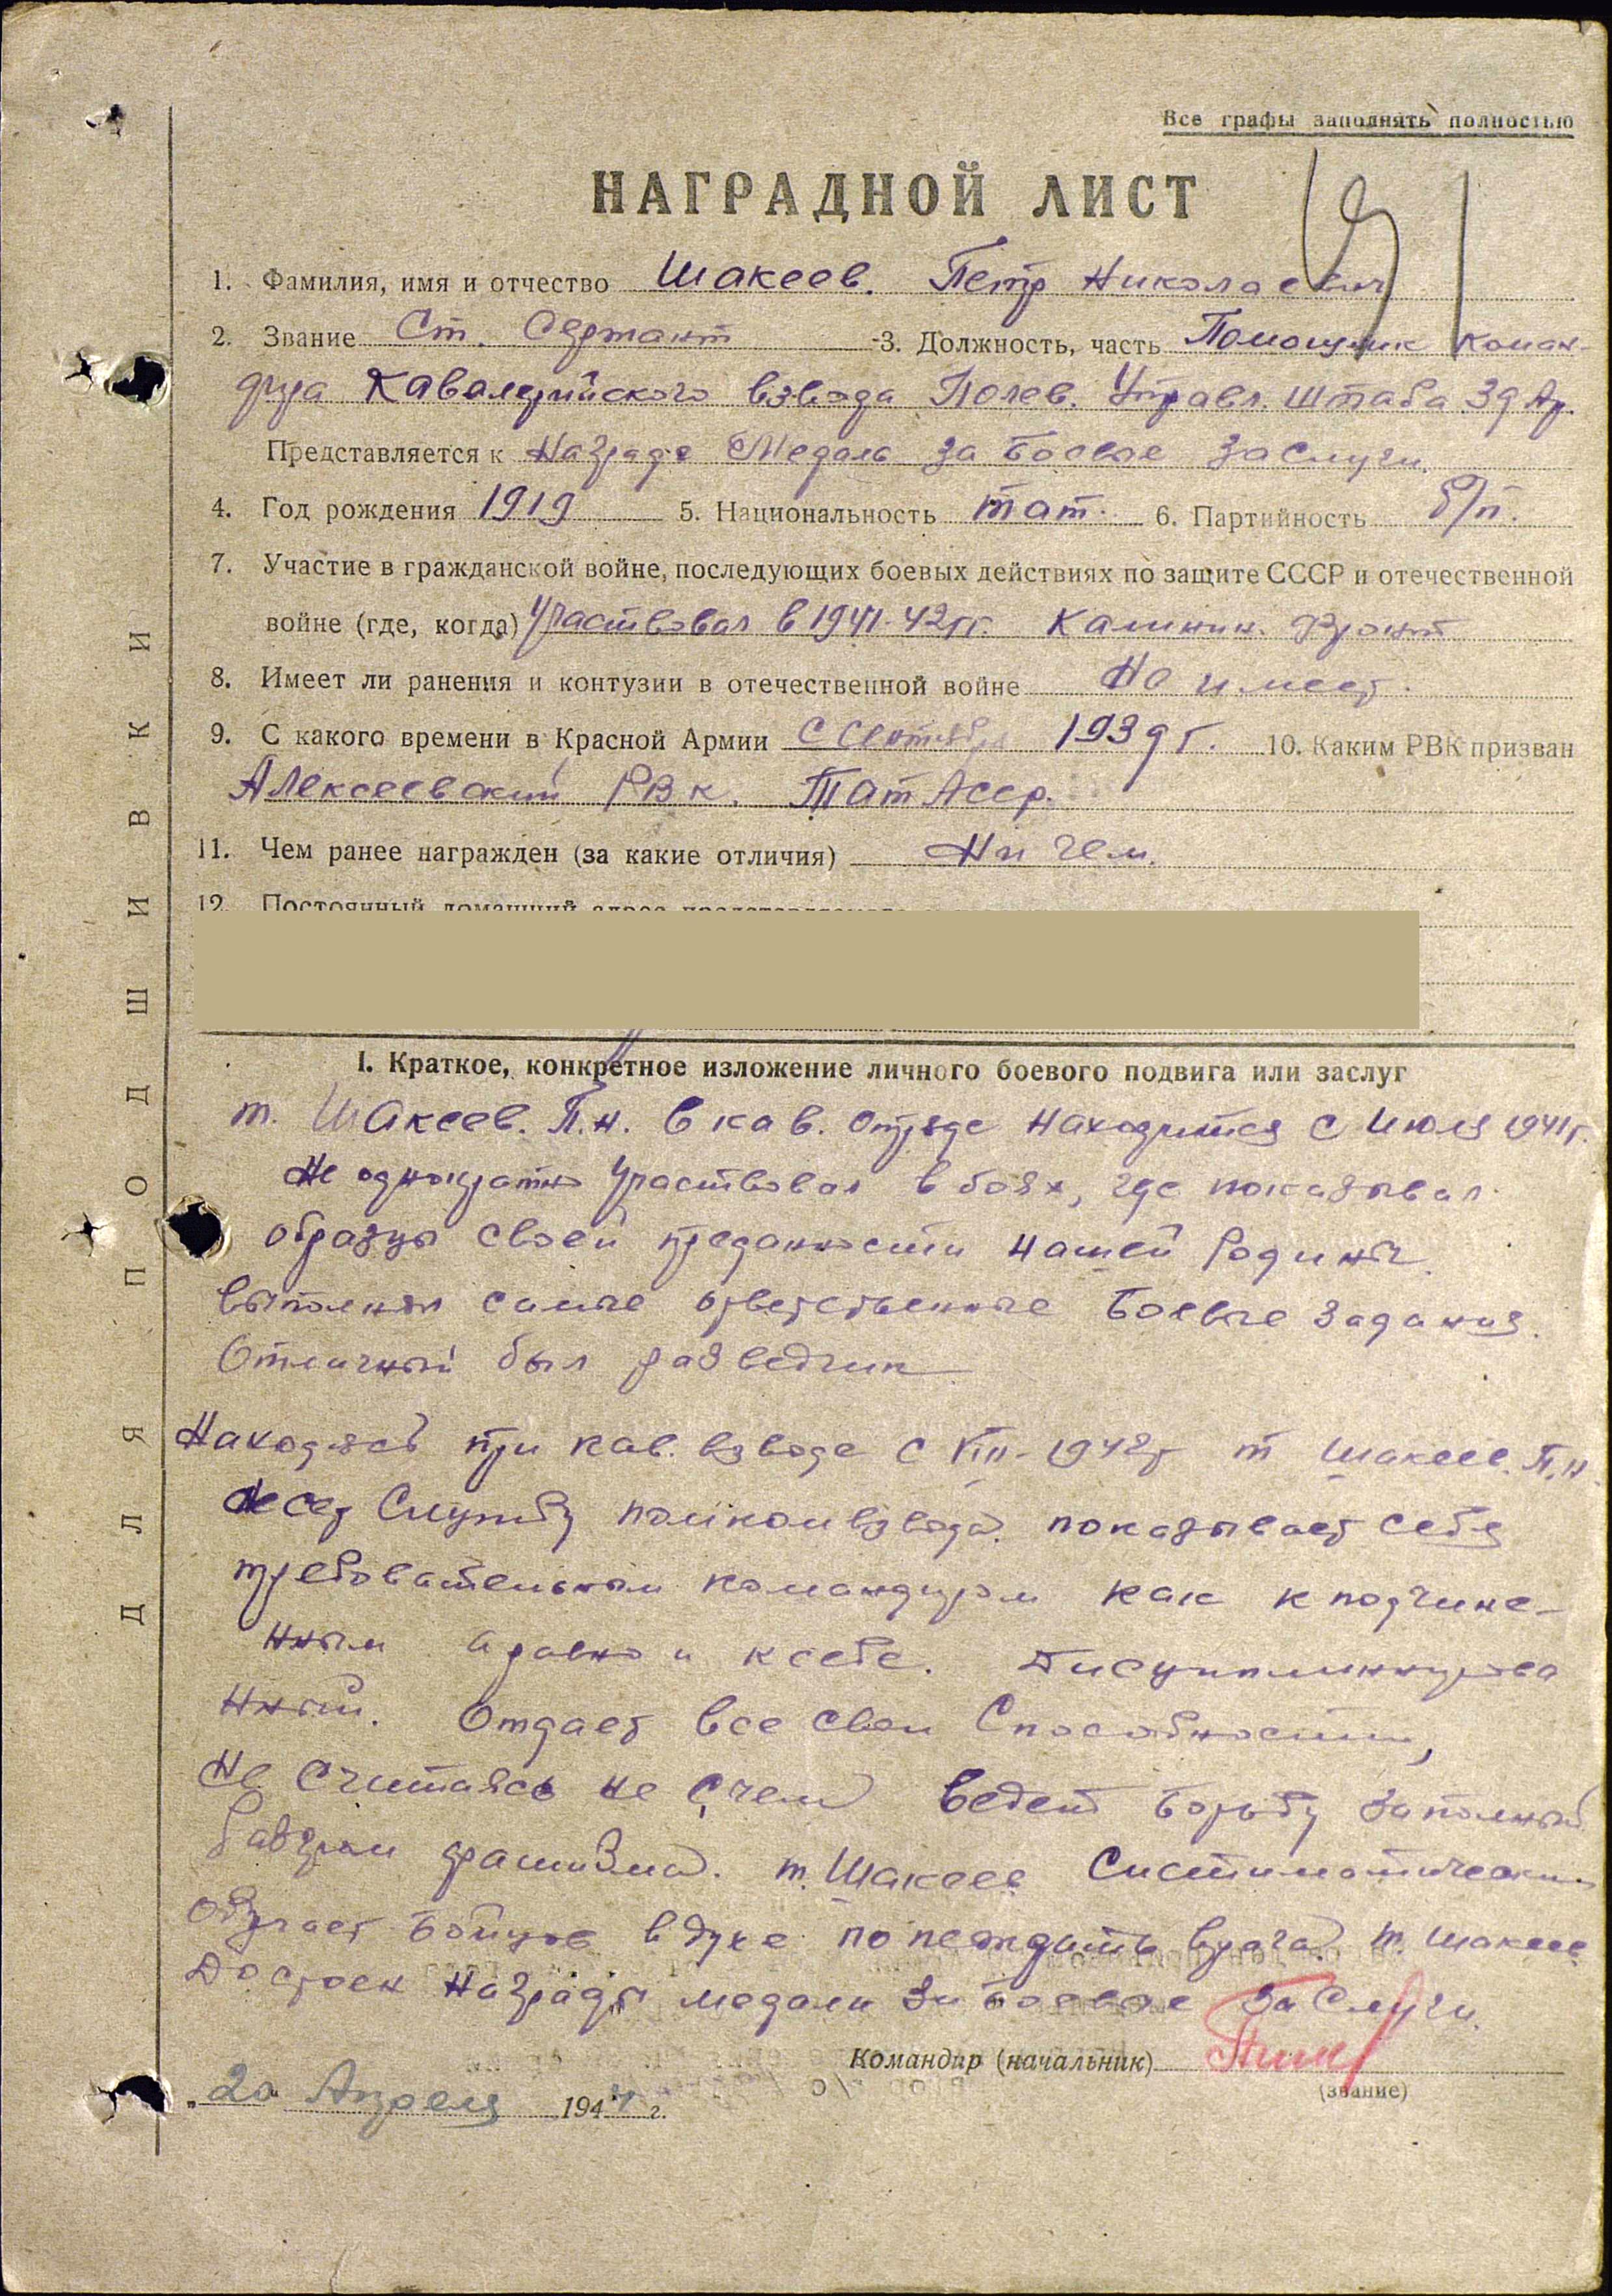 Все графы заполнять полностью
НАГРАДНОЙ ЛИСТ
1. Фамилия, имя и отчество Шакеев. Петр Николаевич
2. Звание Ст. Сержант 3. Должность, часть Помощник коман-
дира Кавалерийского взвода Полев. Управл. Штаба 39 Ар.
Представляется к Награде Медаль за Боевое заслуги.
4. Год рождения 1919 5. Национальность тат. 6. Партийность б/п.
7. Участие в гражданской войне, последующих боевых действиях по защите СССР и отечественной
войне (где, когда) Участвовал в 1941-42 гг. Калинин. Фронт
8. Имеет ли ранения и контузии в отечественной войне Не имеет.
9. С какого времени в Красной Армии С Сентября 1939 г. 10. Каким РВК призван
Алексеевский РВК. Тат Асср.
11. Чем ранее награжден (за какие отличия) Ни чем.
12. Постоянный домашний адрес
I. Краткое, конкретное изложение личного боевого подвига или заслуг
т. Шакеев. П.Н. в кав. отряде находится с Июля 1941 г.
Не однократно участвовал в боях, где показывал
образцы своей преданности нашей Родины.
выполнял самые ответственные Боевые задания.
Отличный был разведчик
Находясь при кав. взводе с 1942 г т Шакеев. П.Н.
несет Службу помкомвзвода. показывает себя
требовательным командиром как к подчине-
нным а равно и к себе. Дисциплинирова
нный. Отдает все свои Способности,
Не Считаясь не с чем ведет борьбу за полный
разгром фашизма. т. Шакеев Систиматически
обучает бойцов в духе по пеждать врага. т. Шакеев
Достоен Награды медали За Боевое За Слуги.
Командир (начальник)
(звание)
„20 Апреля 1944 г.
ДЛЯ ПОДШИВКИ